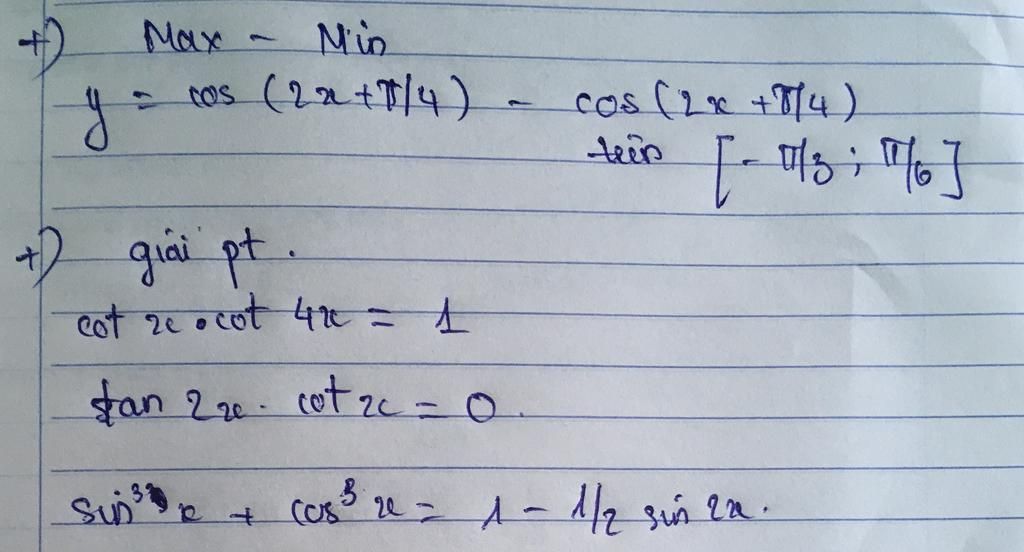 +) Max - Min
y = cos (2x+π/4) - cos(2x+π/4)
trên [-π/3; π/6]
+) giải pt.
cot x . cot 4x = 1
tan 2x . cot x = 0.
sin³ x + cos³ x = 1 - 1/2 sin 2x.